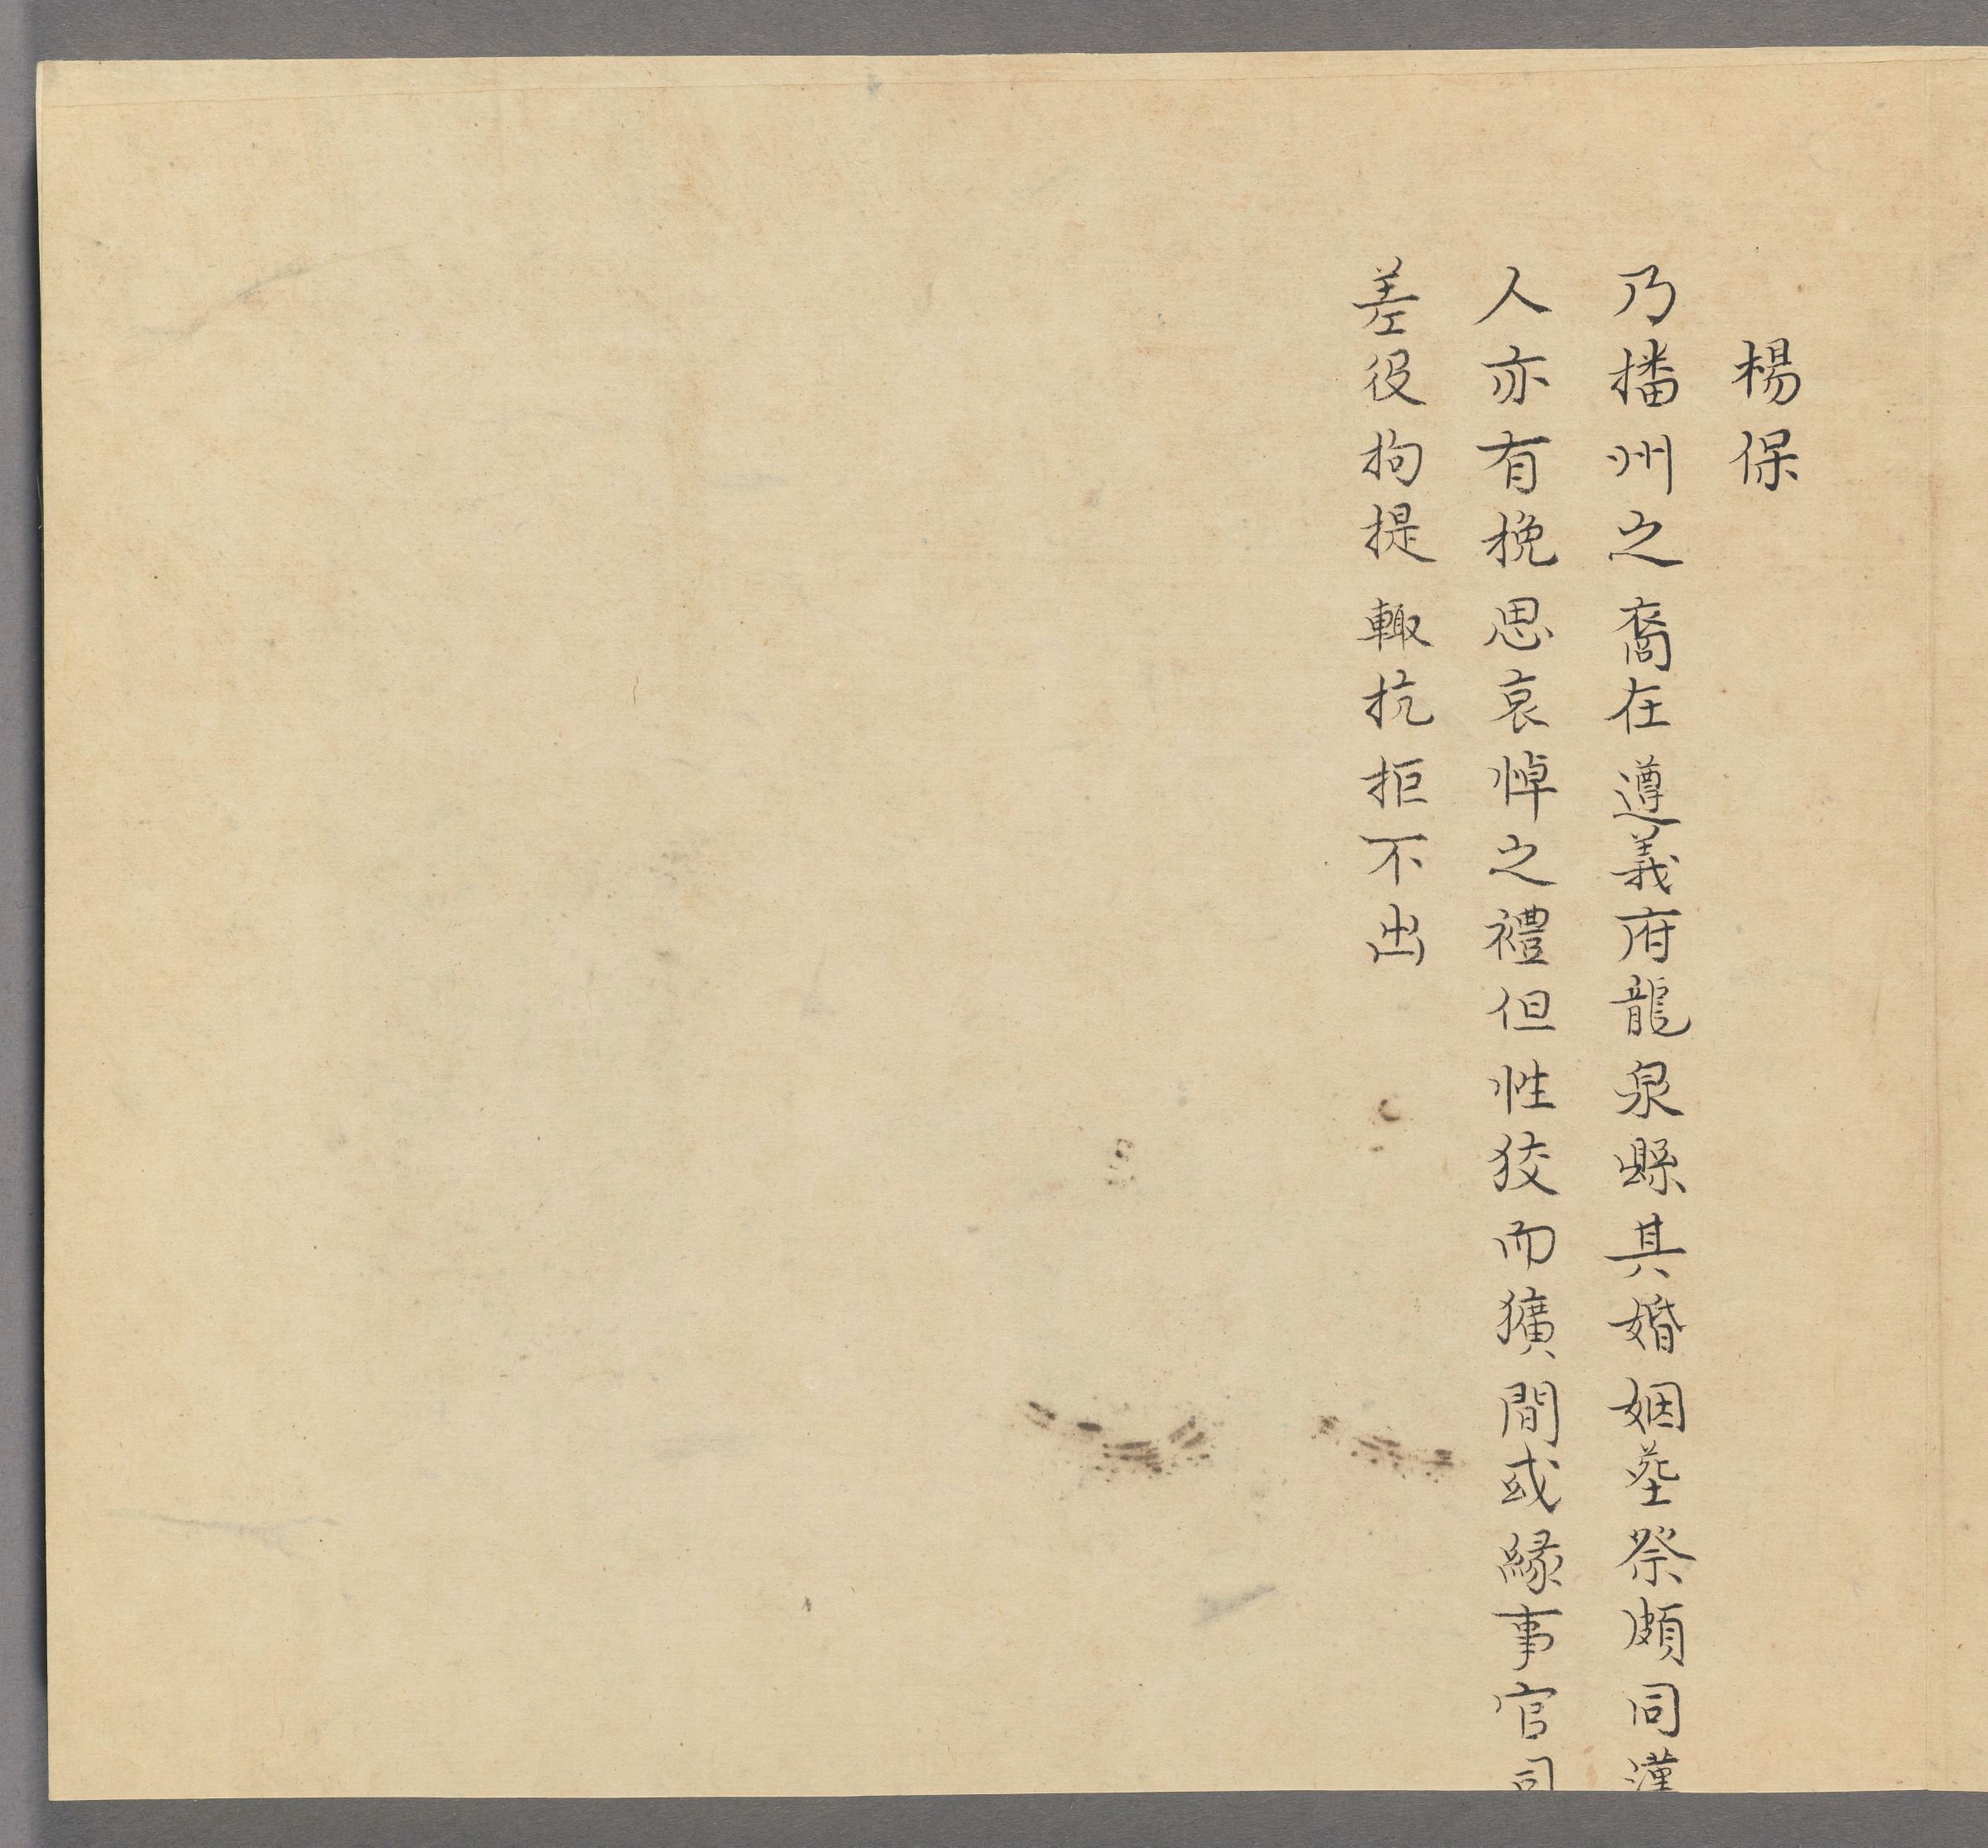 楊保
乃播州之裔在遵義府龍泉縣其婚姻塟祭頗同漢
人亦有挽思哀悼之禮但性狡而獷間或緣事官司
差役拘提輙抗拒不出